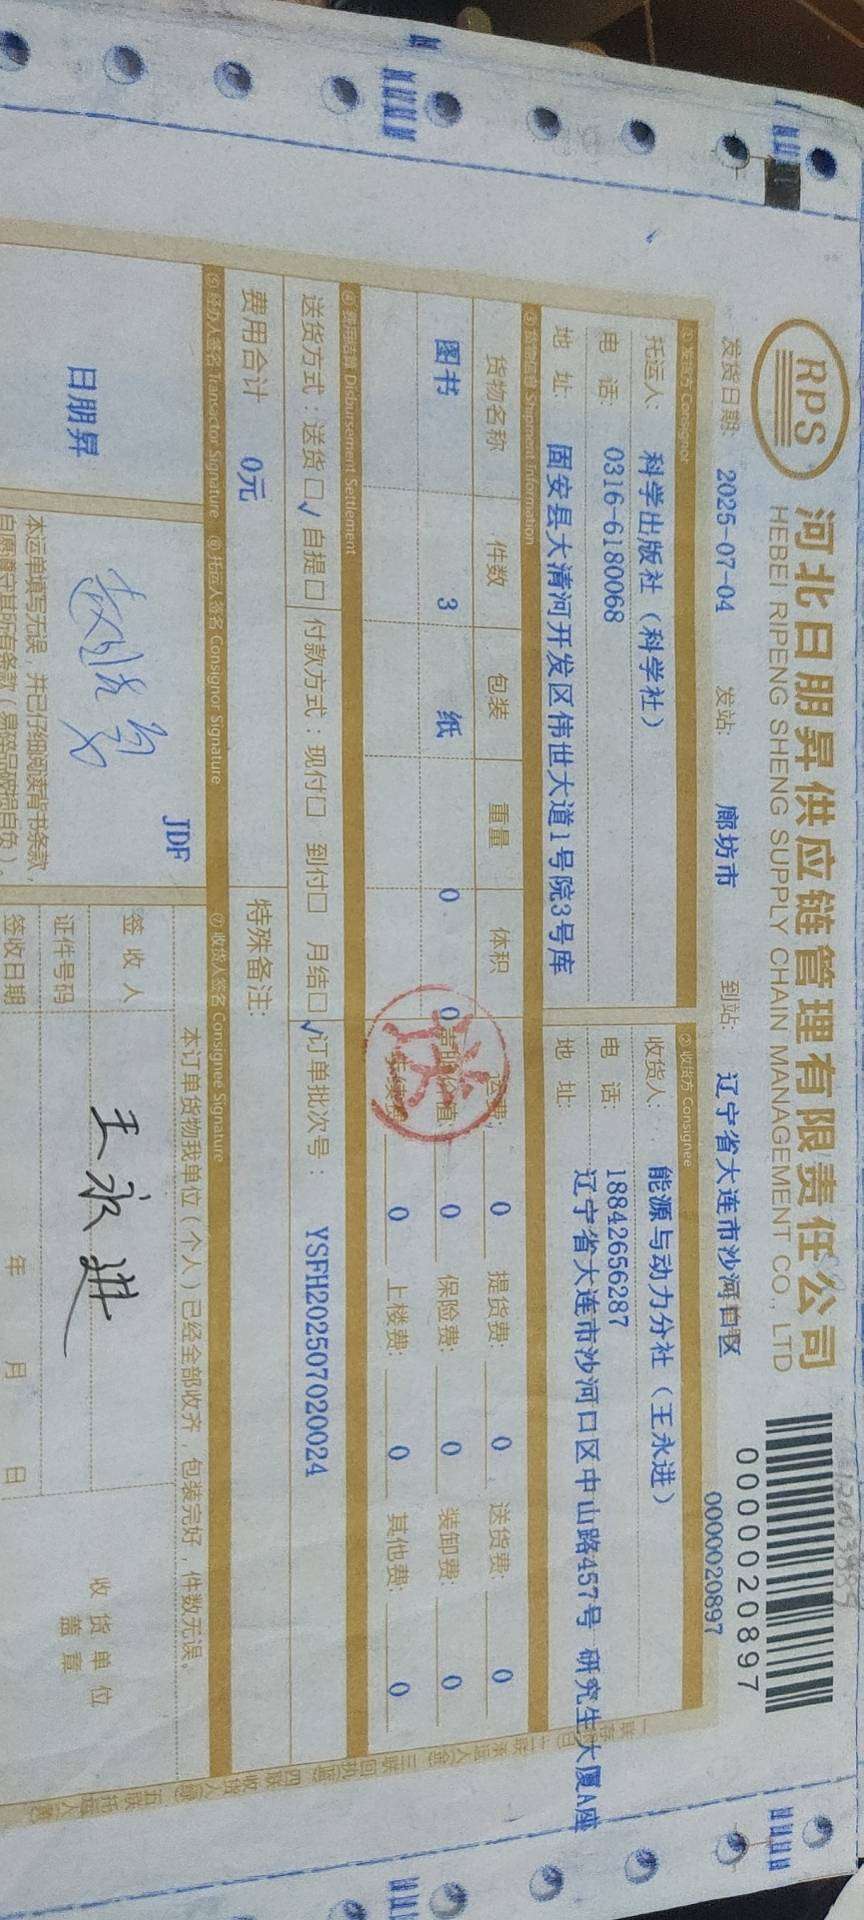 RPS
河北日朋昇供应链管理有限责任公司
HEBEI RIPENG SHENG SUPPLY CHAIN MANAGEMENT CO., LTD
0000020897
发货日期: 2025-07-04 发站: 廊坊市 到站: 辽宁省大连市沙河口区 0000020897
①发货方 Consignor ②收货方 Consignee
托运人: 科学出版社(科学社) 收货人: 能源与动力分社(王永进)
电 话: 0316-6180068 电 话: 18842656287
地 址: 固安县大清河开发区伟世大道1号院3号库 地 址: 辽宁省大连市沙河口区中山路457号 研究生大厦A座
Shipment Information
货物名称 件数 包装 重量 体积 运费: 0 提货费: 0 送货费: 0
图书 3 纸 0 0 0 保险费: 0 装卸费: 0
0 上楼费: 0 其他费: 0
送
Disbursement Settlement
送货方式:送货□√自提□ 付款方式:现付□ 到付□ 月结□√ 订单批次号: YSFH202507020024
费用合计 0元 特殊备注:
⑤经办人签名 Transactor Signature ⑥托运人签名 Consignor Signature ⑦收货人签名 Consignee Signature
日朋昇
JDF
本运单填写无误,并已仔细阅读背书条款,
自愿遵守其所有条款(易碎品破损自负)。
本订单货物我单位(个人)已经全部收齐,包装完好,件数无误。
签收人 王永进
证件号码
签收日期 年 月 日
收货单位
盖章